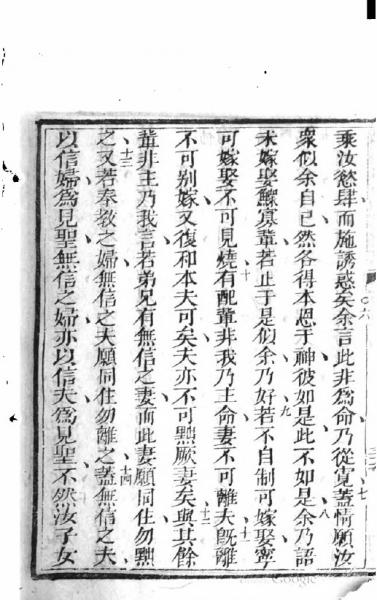 乘汝慾肆而施誘惑矣余言此非為命乃從寬蓋情願汝
衆似余自已然各得本恩于神彼如是此不如是余乃語
未嫁娶鰥寡輩若止于是似余乃好若不自制可嫁娶寧
可嫁娶不可見燒有配輩非我乃主命妻不可離夫既離
不可别嫁又復和本夫可矣夫亦不可黜厥妻矣與其餘
輩非主乃我言若弟兄有無信之妻而此妻願同住勿黜
之又若奉教之婦無信之夫願同住勿離之蓋無信之夫
以信婦為見聖無信之婦亦以信夫為見聖不然汝子女
六
七
八
九
十
十一
十二
十三
十四
Google